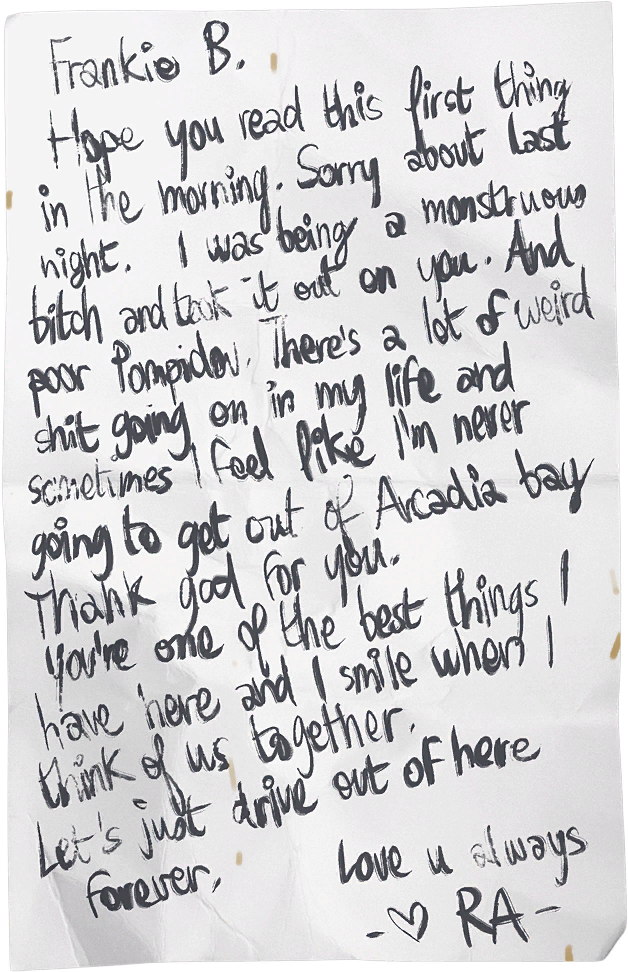 Frankie B.
Hope you read this first thing
in the morning. Sorry about last
night. I was being a monstruous
bitch and took it out on you. And
poor Pompidou. There's a lot of weird
shit going on in my life and
sometimes I feel like I'm never
going to get out of Arcadia bay
Thank god for you.
You're one of the best things I
have here and I smile when I
think of us together.
Let's just drive out of here
forever.
Love u always
-♡ RA-